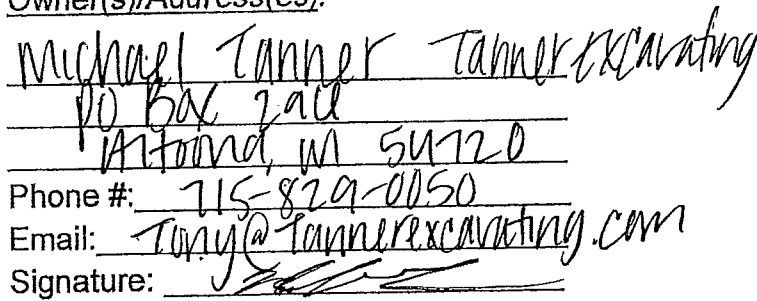 Owner(s)/Address(es):
Michael Tanner Tanner excavating
PO Box
Altoona, WI 54720
Phone #: 715-829-0050
Email: Tony@Tannerexcavating.com
Signature: